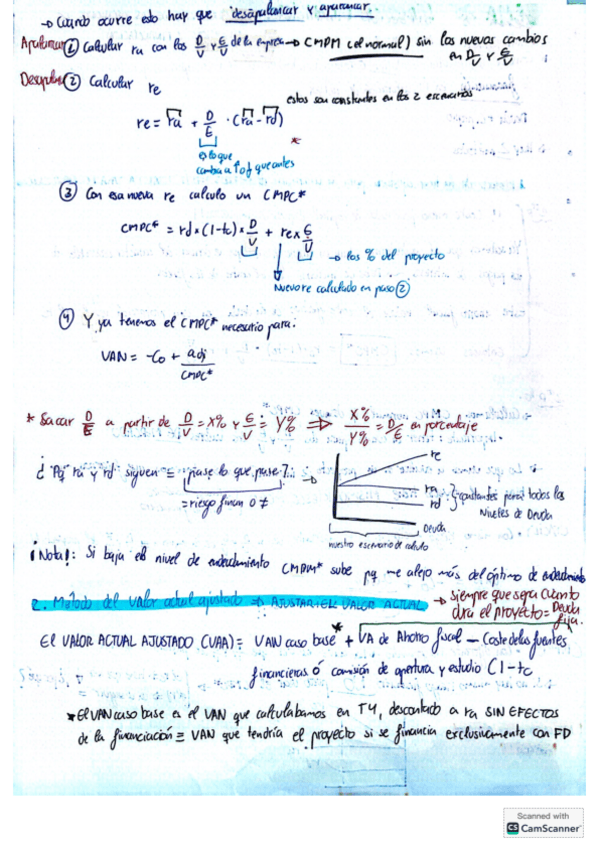 → Cuando ocurre esto hay que desapalancar y apalancar.
Apalancar ① Calcular ra con los D/V y E/V de la empresa → CMPM (el normal) sin los nuevos cambios
en D/V y E/V
② Calcular re
estos son constantes en los 2 escenarios
re = ra + D/E · (ra - rd)
*
es lo que
cambia a ↑ o ↓ que antes
③ Con esa nueva re calculo un CMPC*
CMPC* = rd x (1-tc) x D/V + re x E/V
→ los % del proyecto
Nuevo re calculado en paso ②
④ Y ya tenemos el CMPC* necesario para:
VAN = -Co + adj/CMPC*
* Sacar D/E a partir de D/V = X% y E/V = Y% ⇒ X%/Y% = D/E en porcentaje.
¿ "Pq" ra y rd siguen = pase lo que pase? →
= riesgo finan 0 ≠
re
ra
rd
constantes para todos los
Niveles de Deuda
Deuda
nuestro escenario de calculo
¡Nota!: Si baja el nivel de endeudamiento CMPM* sube pq me alejo más del óptimo de endeudamiento
2. Método del valor actual ajustado → AJUSTAR EL VALOR ACTUAL
→ siempre que sepa cuánto
dura el proyecto = Deuda
fija.
El VALOR ACTUAL AJUSTADO (VAA) = VAN caso base* + VA de Ahorro fiscal - Coste de las fuentes
financieras ó comisión de apertura y estudio (1-tc
* El VAN caso base es el VAN que calculabamos en T4, descontado a ra SIN EFECTOS
de la financiación = VAN que tendría el proyecto si se financia exclusivamente con FD
Scanned with
CS CamScanner